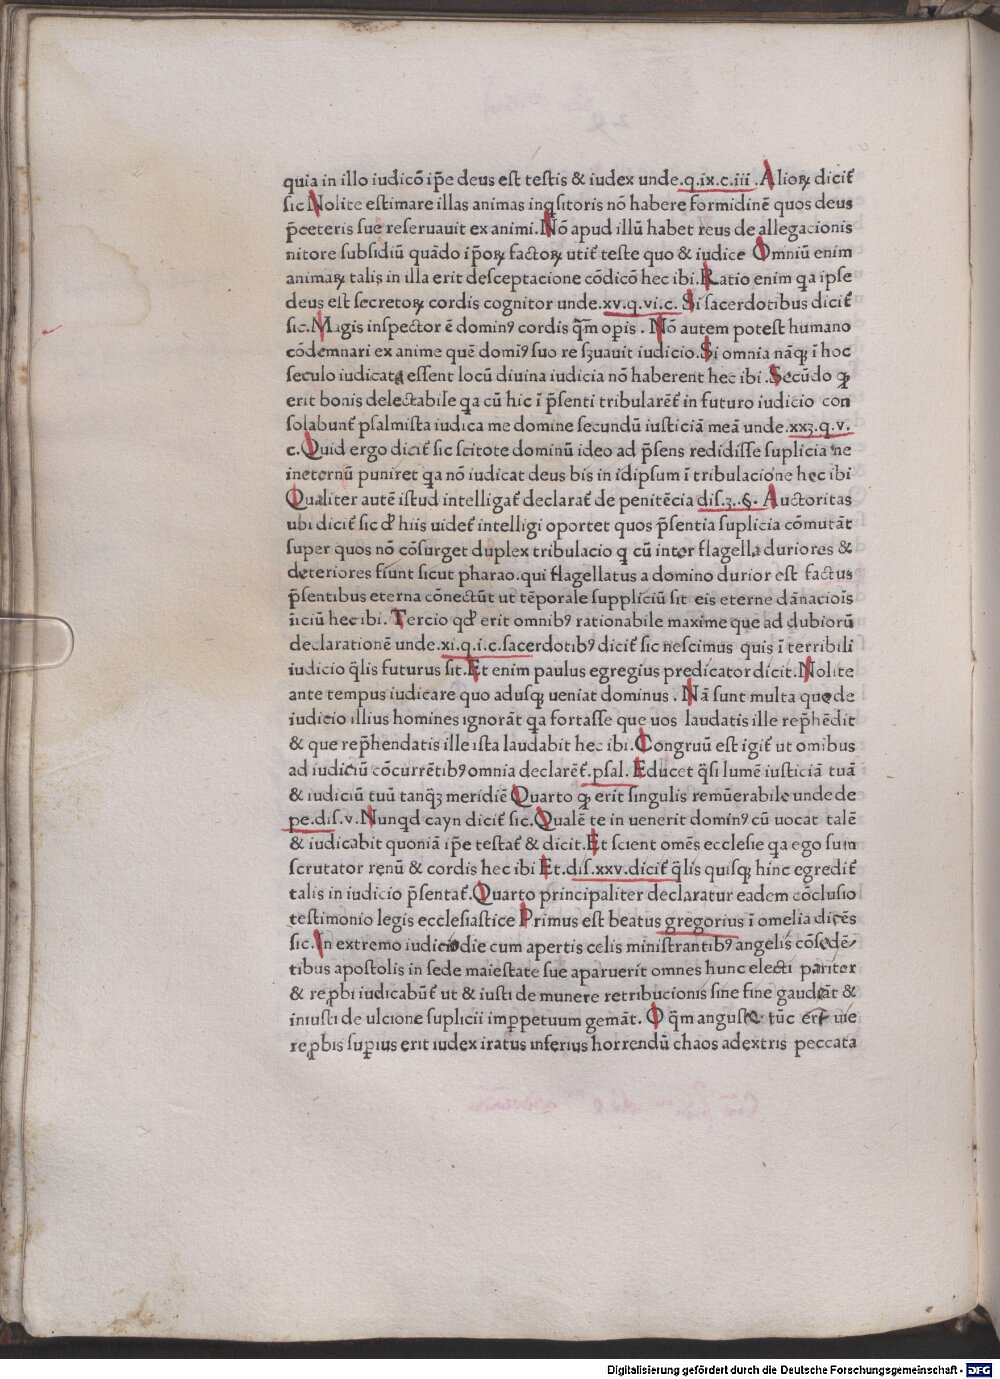 quia in illo iudicō ip̄e deus est testis & iudex unde.q.ix.c.iii .Alioꝝ dicit᷑
sic Nolite estimare illas animas inq̇sitoris nō habere formidinē quos deus
p̄ceteris sue reseruauit ex animi.Nō apud illū habet reus de allegacionis
nitore subsidiū quādo ip̄oꝝ factoꝝ utit᷑ teste quo & iudice Omniū enim
animaꝝ talis in illa erit desceptacione cōdicō hec ibi.Ratio enim qa ipse
deus est secretoꝝ cordis cognitor unde.xv.q.vi.c. Si sacerdotibus dicit᷑
sic.Magis inspector ē dominꝰ cordis q̄m oꝑis . Nō autem potest humano
cōdemnari ex anime quē domīꝰ suo re s̄uauit iudicio.Si omnia nāqꝫ ī hoc
seculo iudicata essent locū diuina iudicia nō haberent hec ibi .Secūdo qꝫ
erit bonis delectabile qa cū hic ī p̄senti tribularēt᷑ in futuro iudicio con
solabunt᷑ psalmista iudica me domine secundū iusticiā meā unde.xxꝫ.q.v.
c.Quid ergo dicit᷑ sic scitote dominū ideo ad p̄sens redidisse suplicia ne
ineternū puniret qa nō iudicat deus bis in idipsum ī tribulacione hec ibi
Qualiter autē istud intelligat᷑ declarat᷑ de penitēcia dis.ꝫ..§. Auctoritas
ubi dicit᷑ sic đ hiis uidet᷑ intelligi oportet quos p̄sentia suplicia cōmutāt
super quos nō cōsurget duplex tribulacio q cū inter flagella duriores &
deteriores fiunt sicut pharao.qui flagellatus a domino durior est factus
p̄sentibus eterna cōnectūt ut tēporale suppliciū sit eis eterne dānacioīs
īiciū hec ibi. Tercio qđ erit omnibꝰ rationabile maxime que ad dubiorū
declarationē unde.xi.q.i.c.sacerdotibꝰ dicit᷑ sic nescimus quis ī terribili
iudicio q̄lis futurus sit.Et enim paulus egregius predicator dicit.Nolite
ante tempus iudicare quo adusqꝫ ueniat dominus . Nā sunt multa que de
iudicio illius homines ignorāt qa fortasse que uos laudatis ille rep̄hēdit
& que rep̄hendatis ille ista laudabit hec ibi.Congruū est igit᷑ ut omibus
ad iudiciū cōcurrētibꝰ omnia declarēt᷑.psal. Educet q̄si lumē iusticiā tuā
& iudiciū tuū tanq̄ꝫ meridiē Quarto qꝫ erit singulis remūerabile unde de
pe.dis.v.Nunqd cayn dicit᷑ sic.Qualē te in uenerit dominꝰ cū uocat talē
& iudicabit quoniā ip̄e testat᷑ & dicit.Et scient omēs ecclesie qa ego sum
scrutator renū & cordis hec ibi Et.dis.xxv.dicit᷑ q̄lis quisqꝫ hinc egredit᷑
talis in iudicio p̄sentat᷑.Quarto principaliter declaratur eadem cōclusio
testimonio legis ecclesiastice Primus est beatus gregorius ī omelia dicēs
sic.In extremo iudicio die cum apertis celis ministrantibꝰ angelis cōsedē⸗
tibus apostolis in sede maiestate sue aparuerit omnes hunc electi pariter
& reꝓbi iudicabūt᷑ ut & iusti de munere retribucionis sine fine gaudeāt &
iniusti de ulcione suplicii imꝑpetuum gemāt. O q̄m anguste tūc erūt uie
reꝓbis suꝑius erit iudex iratus inferius horrendū chaos adextris peccata
Digitalisierung gefördert durch die Deutsche Forschungsgemeinschaft - DFG